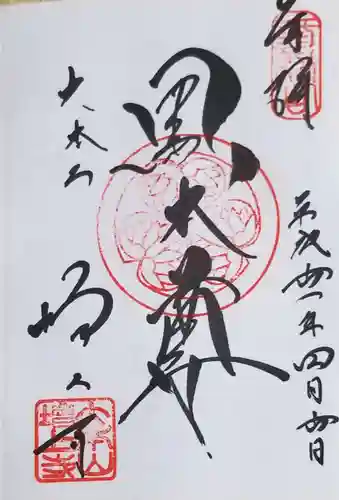 奉拝
平成卅一年四月卅日
黒本尊
大本山
増上寺